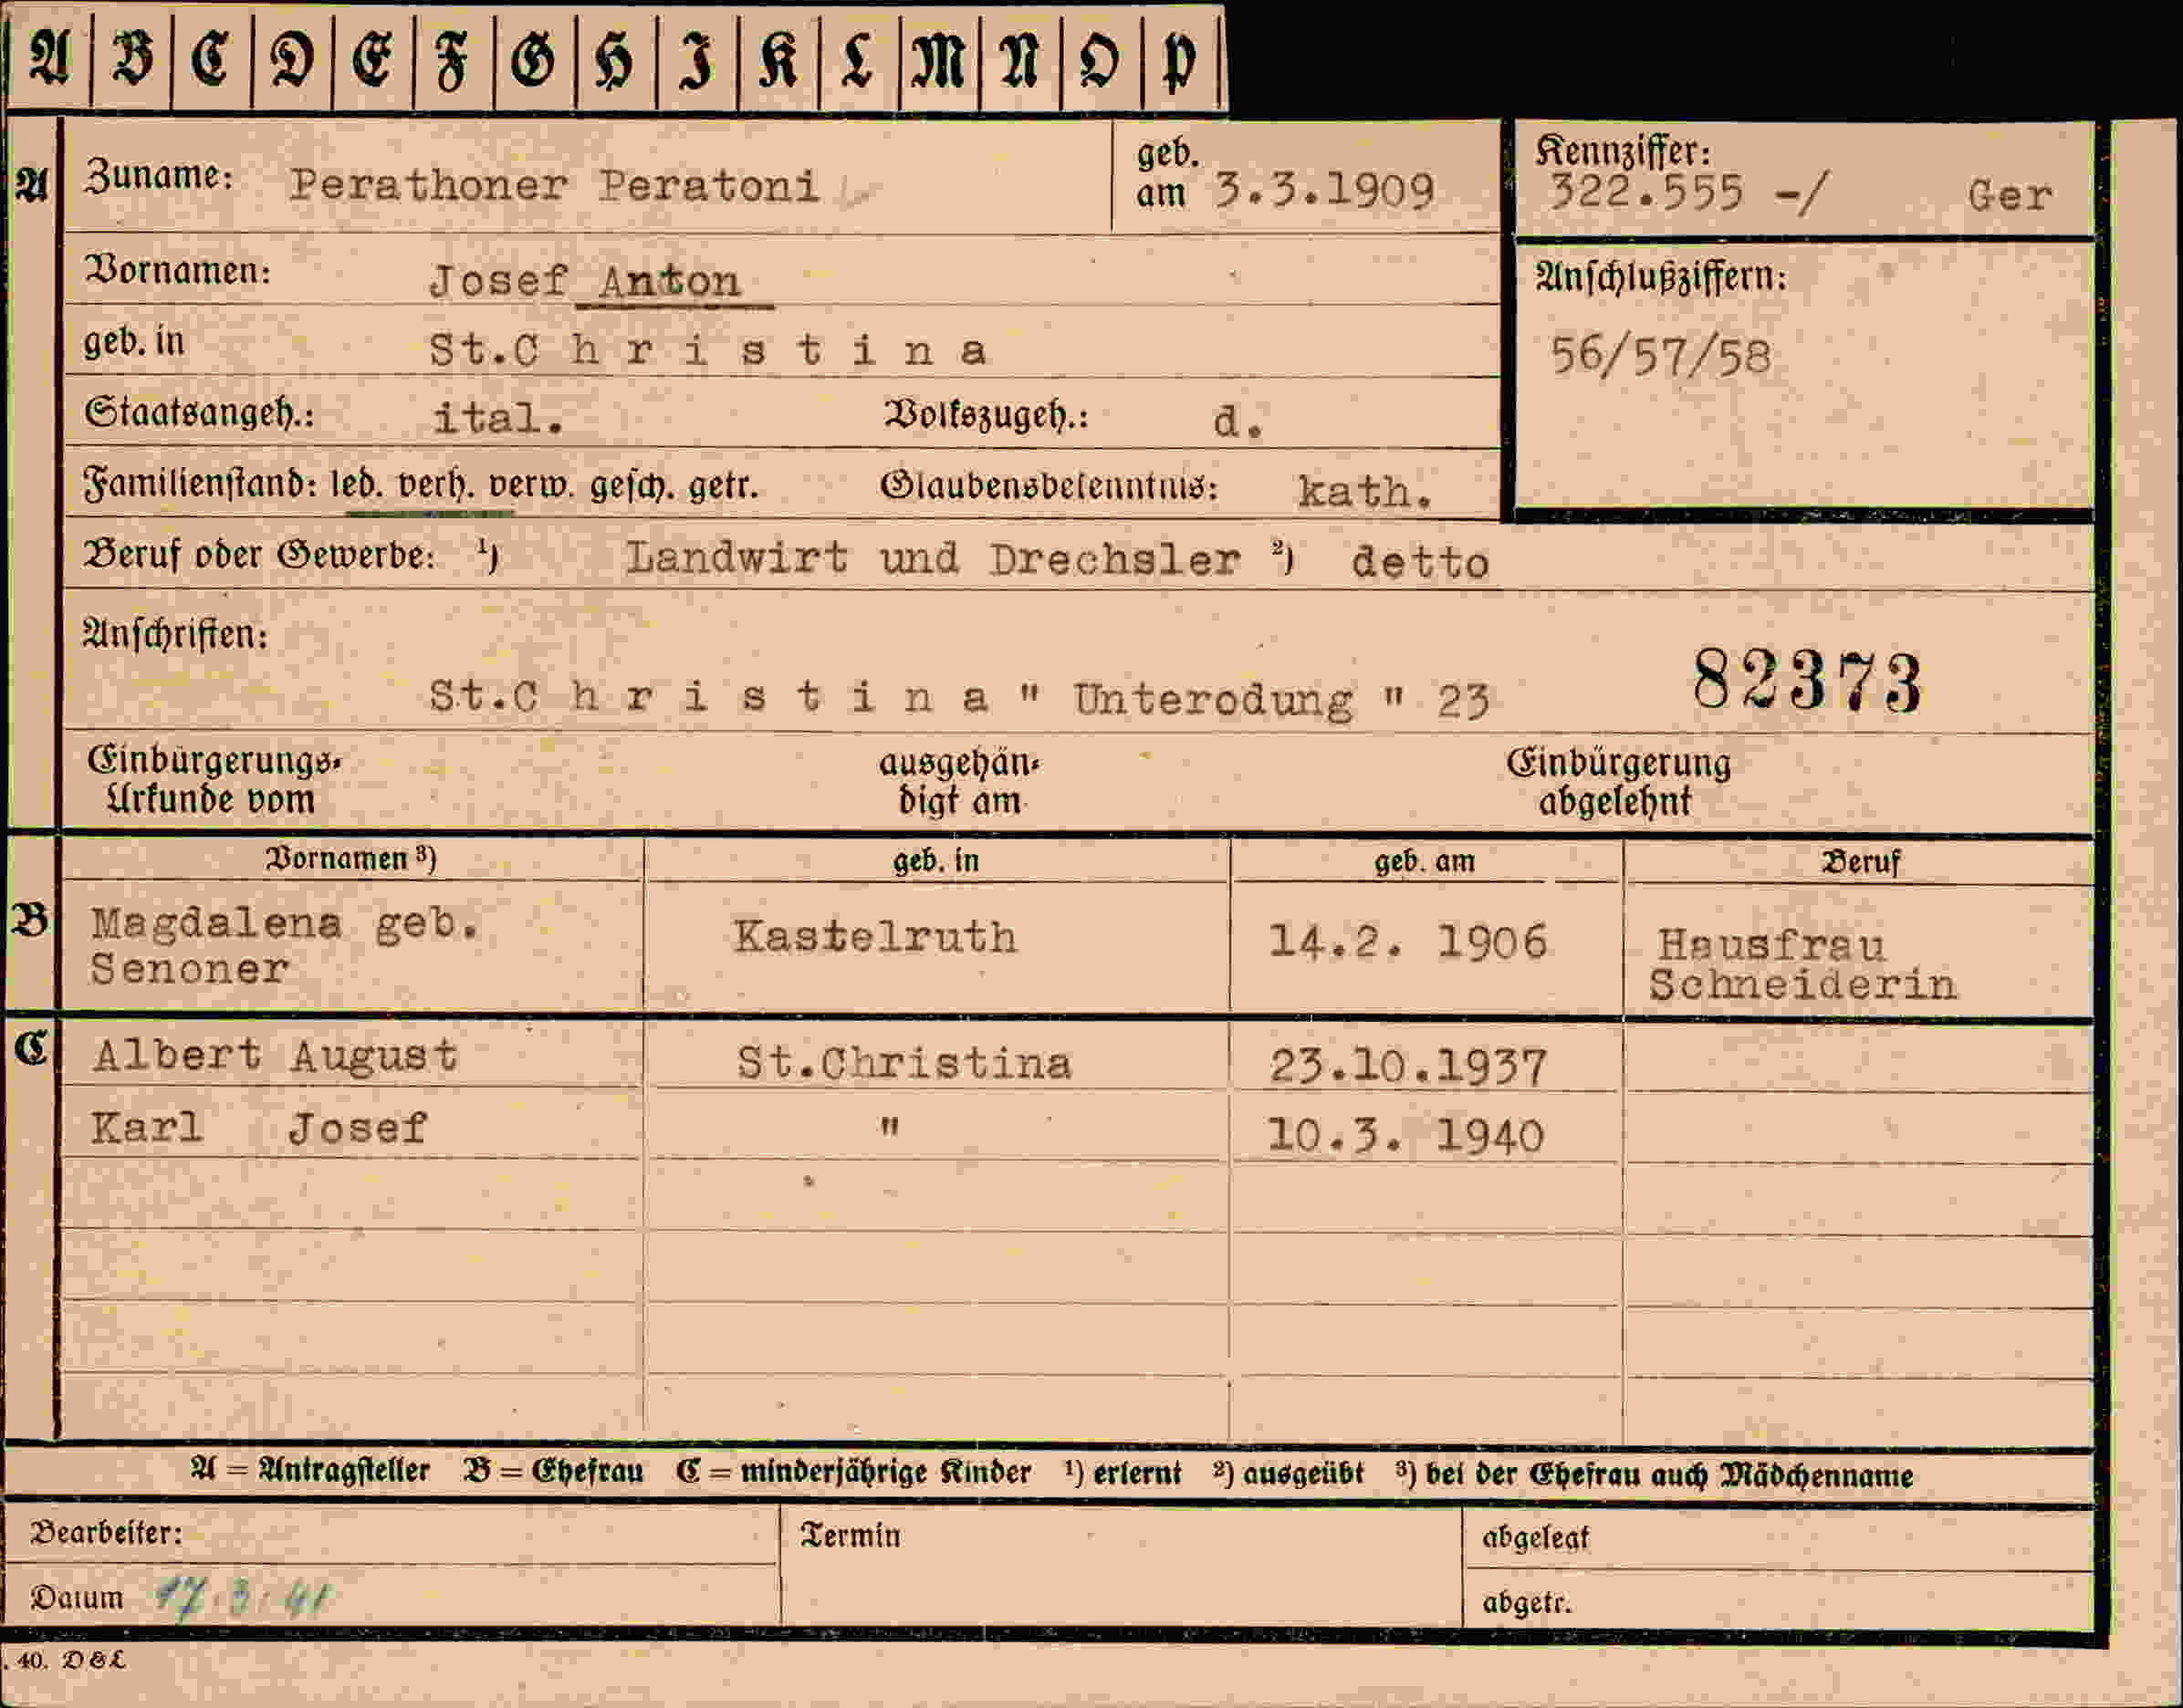 A B C D E F G H I K L M N O P
A Zuname: Perathoner Peratoni geb. am 3.3.1909 Kennziffer: 322.555 -/ Ger
Vornamen: Josef Anton Anschlußziffern:
geb. in St.C h r i s t i n a 56/57/58
Staatsangeh.: ital. Volkszugeh.: d.
Familienstand: led. verh. verw. gesch. getr. Glaubensbekenntnis: kath.
Beruf oder Gewerbe: ¹) Landwirt und Drechsler ²) detto
Anschriften:
St.C h r i s t i n a " Unterodung " 23 82373
Einbürgerungs- ausgehän- Einbürgerung
Urkunde vom digt am abgelehnt
Vornamen ³) geb. in geb. am Beruf
B Magdalena geb. Kastelruth 14.2. 1906 Hausfrau
Senoner Schneiderin
C Albert August St.Christina 23.10.1937
Karl Josef " 10.3. 1940
A = Antragsteller B = Ehefrau C = minderjährige Kinder ¹) erlernt ²) ausgeübt ³) bei der Ehefrau auch Mädchenname
Bearbeiter: Termin abgelegt
Datum 17.3.41 abgetr.
. 40. D&L